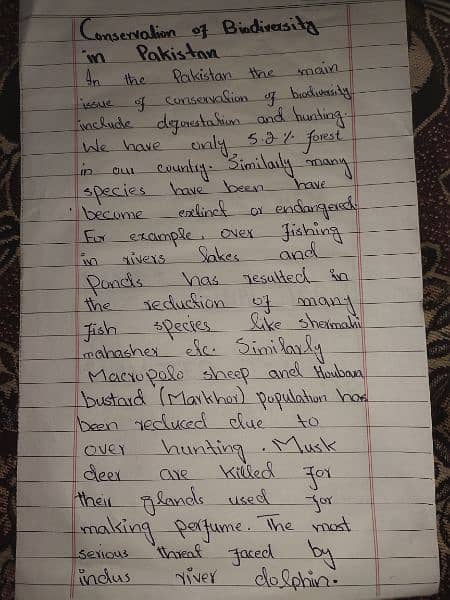 Conservation of Biodiversity
in Pakistan
In the Pakistan the main
issue of conservation of biodiversity
include deforestation and hunting.
We have only 5.2% forest
in our country. Similarly many
species have been have
become extinct or endangered.
For example, over fishing
in rivers lakes and
Ponds has resulted in
the reduction of many
fish species like shermahi
mahasher etc. Similarly
Macropolo sheep and Houbara
bustard (Markhor) population has
been reduced due to
over hunting. Musk
deer are killed for
their glands used for
making perfume. The most
serious threat faced by
indus river dolphin.